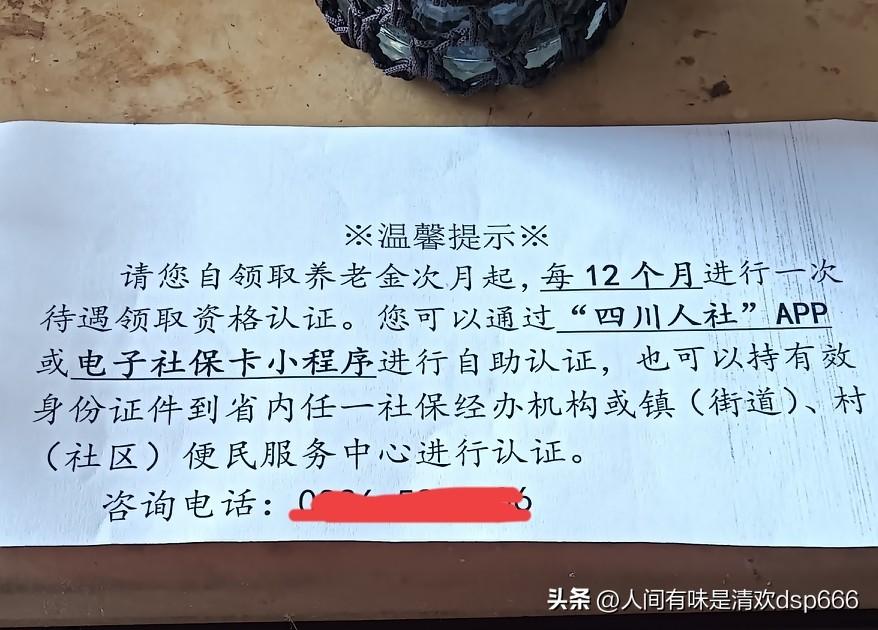 ※温馨提示※
请您自领取养老金次月起，每12个月进行一次
待遇领取资格认证。您可以通过“四川人社”APP
或电子社保卡小程序进行自助认证，也可以持有效
身份证件到省内任一社保经办机构或镇（街道）、村
（社区）便民服务中心进行认证。
咨询电话：
头条 @人间有味是清欢dsp666